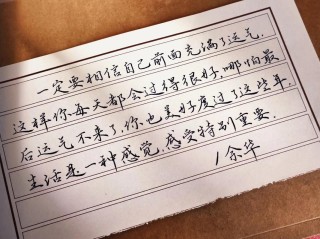 一定要相信自己前面充满了运气.
这样你每天都会过得很好.哪怕最
后运气不来了,你也美好度过了这些年.
生活是一种感觉,感受特别重要.
/余华